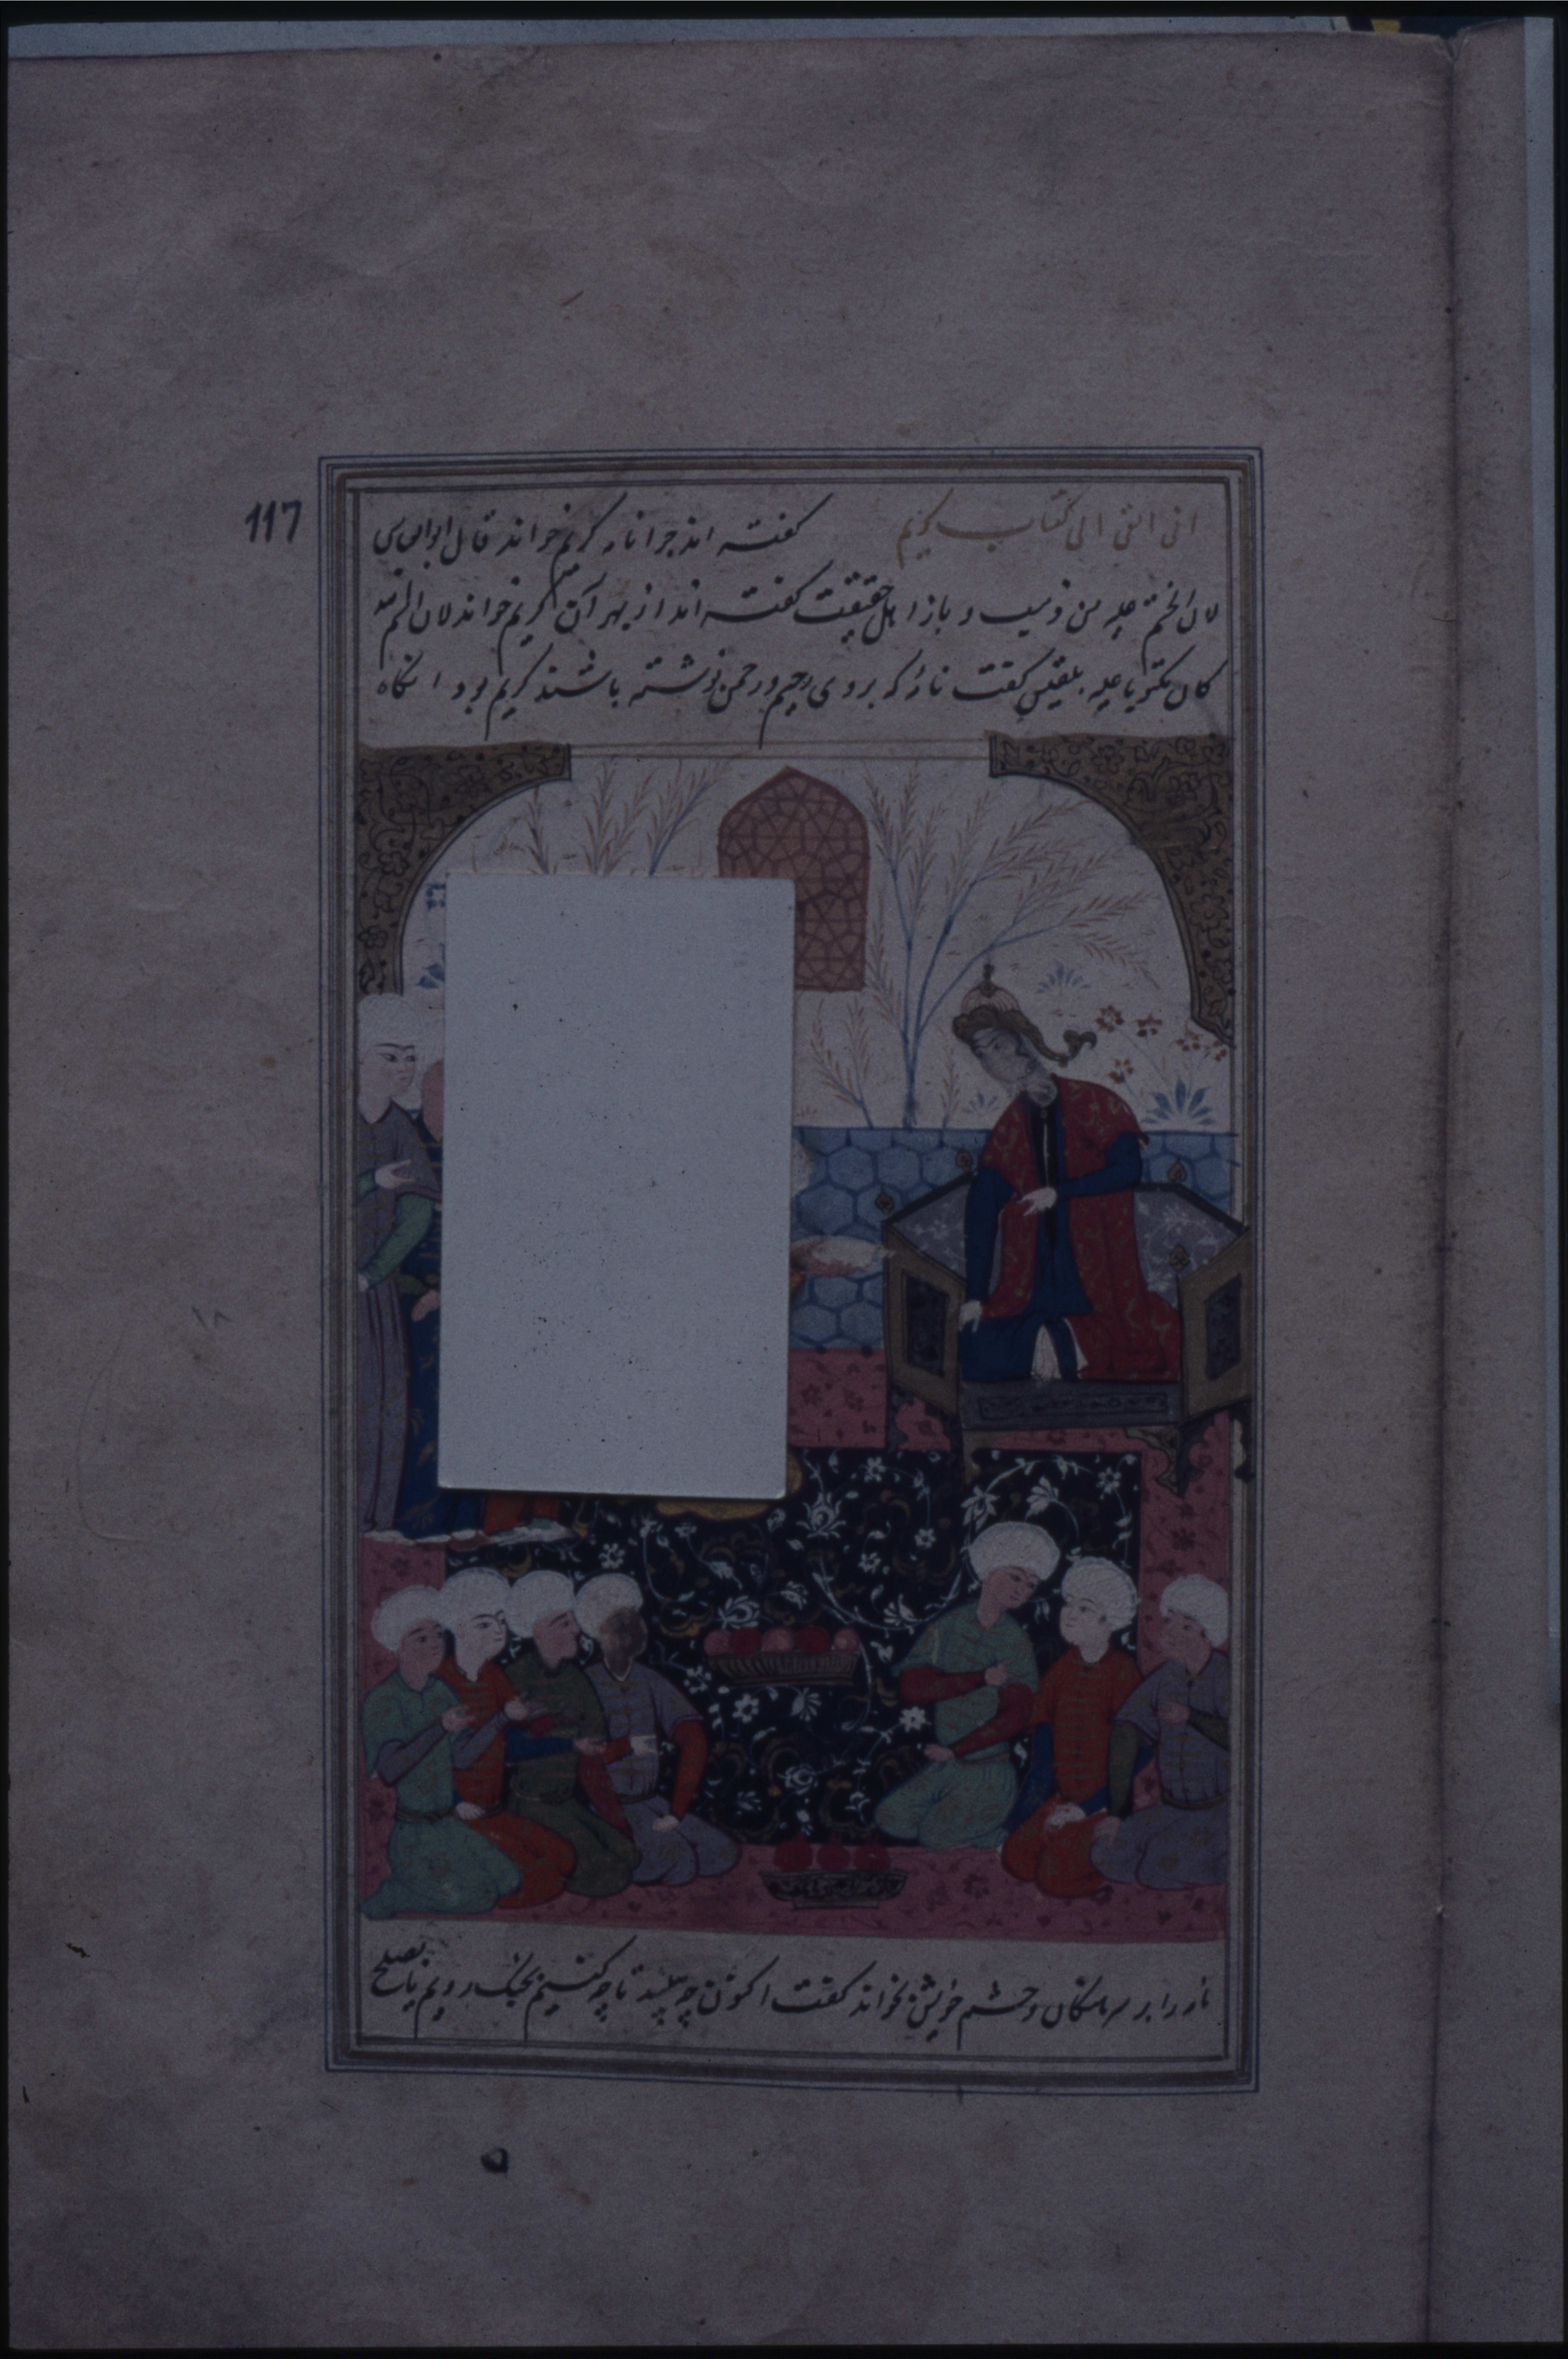 117
انی القی الی کتاب کریم گفته اند چرا نامه کریم خواند قال
لان الختم علیه من و باز اهل حقیقت گفته اند از بهر آن کریم خواند لان
کان مکتوبا علیه بلقیس گفت نامهٔ که بر وی رحیم و رحمن نوشته باشند کریم بود انگاه
نامه را بر سر ملکان و حشم خویش بخواند گفت اکنون چه تا چه کنیم بجنگ رویم یا بصلح